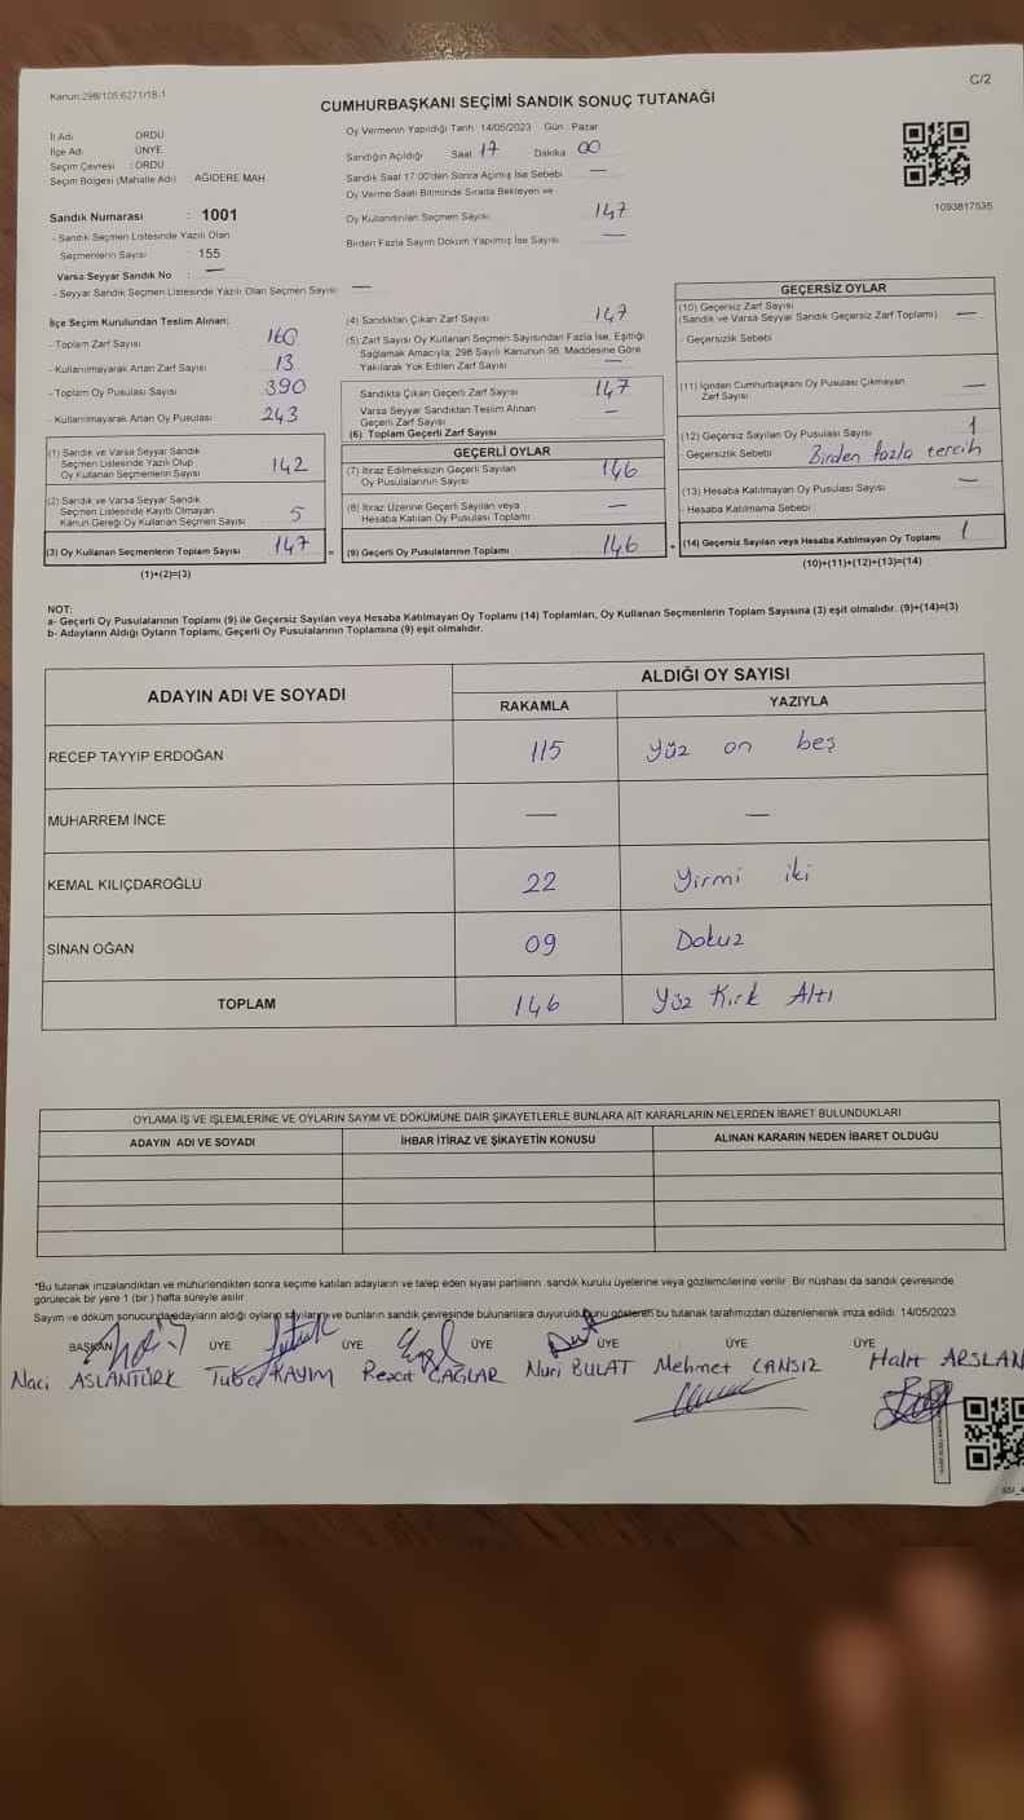 Kanun:298/105 6271/18-1
C/2
CUMHURBAŞKANI SEÇİMİ SANDIK SONUÇ TUTANAĞI
İl Adı ORDU
İlçe Adı ÜNYE
Seçim Çevresi : ORDU
Seçim Bölgesi (Mahalle Adı) AĞIDERE MAH
Sandık Numarası : 1001
- Sandık Seçmen Listesinde Yazılı Olan
Seçmenlerin Sayısı 155
Varsa Seyyar Sandık No : —
- Seyyar Sandık Seçmen Listesinde Yazılı Olan Seçmen Sayısı —
Oy Vermenin Yapıldığı Tarih 14/05/2023 Gün : Pazar
Sandığın Açıldığı Saat 17 Dakika 00
Sandık Saat 17:00'den Sonra Açımış İse Sebebi —
Oy Verme Saati Bitiminde Sırada Bekleyen ve
Oy Kullandırılan Seçmen Sayısı 147
Birden Fazla Sayım Döküm Yapılmış İse Sayısı —
1093817535
İlçe Seçim Kurulundan Teslim Alınan;
- Toplam Zarf Sayısı 160
- Kullanılmayarak Artan Zarf Sayısı 13
- Toplam Oy Pusulası Sayısı 390
- Kullanılmayarak Artan Oy Pusulası 243
(1) Sandık ve Varsa Seyyar Sandık
Seçmen Listesinde Yazılı Olup
Oy Kullanan Seçmenlerin Sayısı 142
(2) Sandık ve Varsa Seyyar Sandık
Seçmen Listesinde Kayıtlı Olmayan
Kanun Gereği Oy Kullanan Seçmen Sayısı 5
(3) Oy Kullanan Seçmenlerin Toplam Sayısı 147
(1)+(2)=(3)
(4) Sandıktan Çıkan Zarf Sayısı 147
(5) Zarf Sayısı Oy Kullanan Seçmen Sayısından Fazla İse, Eşitliği
Sağlamak Amacıyla; 298 Sayılı Kanunun 98. Maddesine Göre
Yakılarak Yok Edilen Zarf Sayısı —
Sandıkta Çıkan Geçerli Zarf Sayısı 147
Varsa Seyyar Sandıktan Teslim Alınan
Geçerli Zarf Sayısı —
(6) Toplam Geçerli Zarf Sayısı
GEÇERLİ OYLAR
(7) İtiraz Edilmeksizin Geçerli Sayılan
Oy Pusulalarının Sayısı 146
(8) İtiraz Üzerine Geçerli Sayılan veya
Hesaba Katılan Oy Pusulası Toplamı —
= (9) Geçerli Oy Pusulalarının Toplamı 146
GEÇERSİZ OYLAR
(10) Geçersiz Zarf Sayısı
(Sandık ve Varsa Seyyar Sandık Geçersiz Zarf Toplamı) —
Geçersizlik Sebebi
(11) İçinden Cumhurbaşkanı Oy Pusulası Çıkmayan
Zarf Sayısı —
(12) Geçersiz Sayılan Oy Pusulası Sayısı 1
Geçersizlik Sebebi Birden fazla tercih
(13) Hesaba Katılmayan Oy Pusulası Sayısı —
Hesaba Katılmama Sebebi
+ (14) Geçersiz Sayılan veya Hesaba Katılmayan Oy Toplamı 1
(10)+(11)+(12)+(13)=(14)
NOT:
a- Geçerli Oy Pusulalarının Toplamı (9) ile Geçersiz Sayılan veya Hesaba Katılmayan Oy Toplamı (14) Toplamları, Oy Kullanan Seçmenlerin Toplam Sayısına (3) eşit olmalıdır. (9)+(14)=(3)
b- Adayların Aldığı Oyların Toplamı, Geçerli Oy Pusulalarının Toplamına (9) eşit olmalıdır.
ADAYIN ADI VE SOYADI
ALDIĞI OY SAYISI
RAKAMLA YAZIYLA
RECEP TAYYİP ERDOĞAN 115 Yüz on beş
MUHARREM İNCE — —
KEMAL KILIÇDAROĞLU 22 Yirmi iki
SİNAN OĞAN 09 Dokuz
TOPLAM 146 Yüz Kırk Altı
OYLAMA İŞ VE İŞLEMLERİNE VE OYLARIN SAYIM VE DÖKÜMÜNE DAİR ŞİKAYETLERLE BUNLARA AİT KARARLARIN NELERDEN İBARET BULUNDUKLARI
ADAYIN ADI VE SOYADI İHBAR İTİRAZ VE ŞİKAYETİN KONUSU ALINAN KARARIN NEDEN İBARET OLDUĞU
*Bu tutanak imzalandıktan ve mühürlendikten sonra seçime katılan adayların ve talep eden siyasi partilerin sandık kurulu üyelerine veya gözlemcilerine verilir. Bir nüshası da sandık çevresinde
görülecek bir yere 1 (bir) hafta süreyle asılır.
Sayım ve döküm sonucunda adayların aldığı oyların sayılarını ve bunların sandık çevresinde bulunanlara duyurulduğunu gösteren bu tutanak tarafımızdan düzenlenerek imza edildi. 14/05/2023
BAŞKAN ÜYE ÜYE ÜYE ÜYE ÜYE ÜYE
Naci ASLANTÜRK Tuba KAYIM Recat ÇAĞLAR Nuri BULAT Mehmet CANSIZ Halit ARSLAN